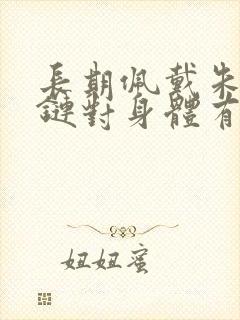 長期佩戴朱
鏈對身體有
妞妞蜜